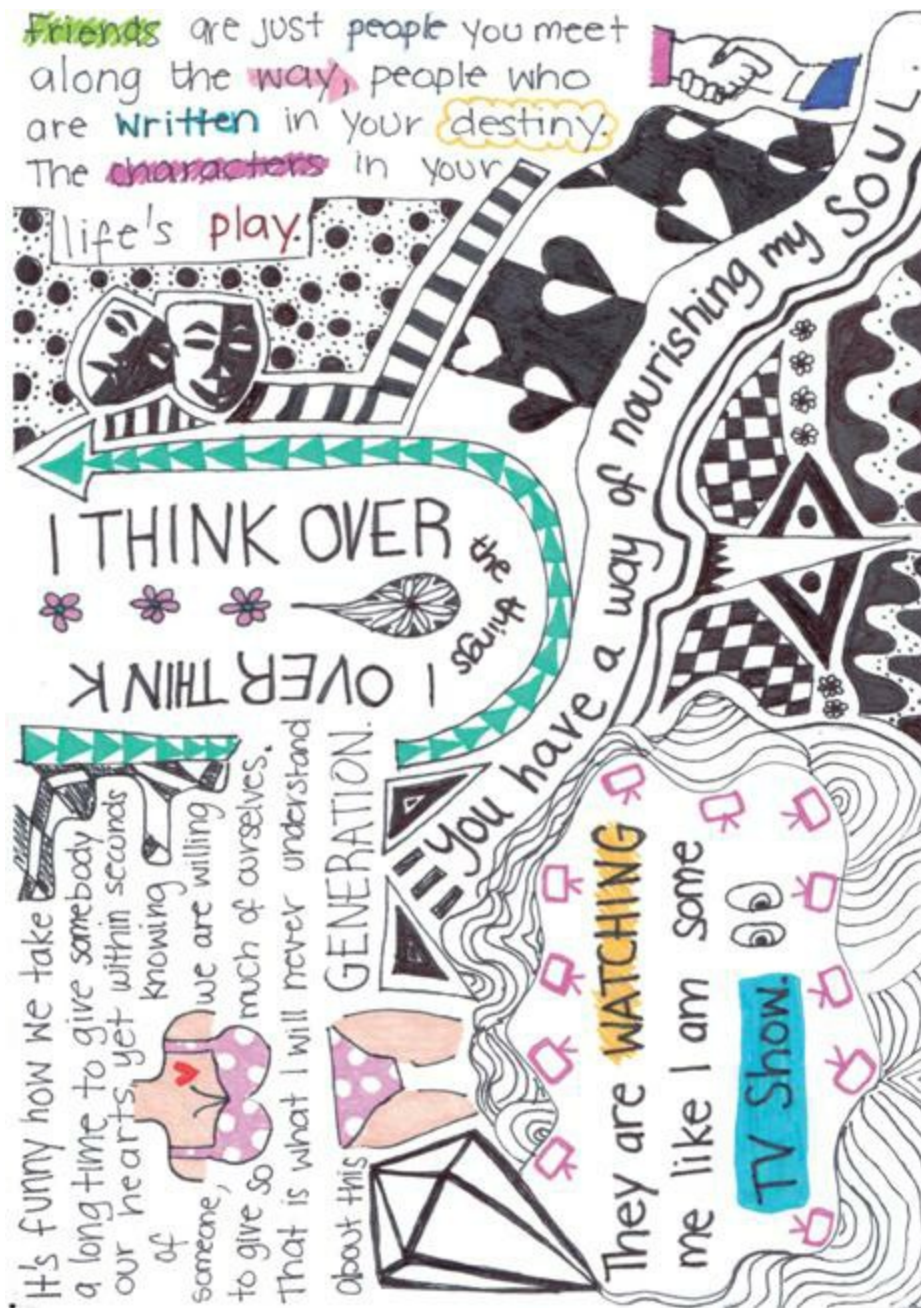 Friends are just people you meet
along the way, people who
are written in your destiny.
The characters in your
life's play.
You have a way of nourishing my SOUL.
I THINK OVER
the things
I OVERTHINK
It's funny how we take
a long time to give somebody
our hearts, yet within seconds
of knowing
someone, we are willing
to give so much of ourselves.
That is what I will never understand
about this GENERATION.
They are WATCHING
me like I am some
TV Show.